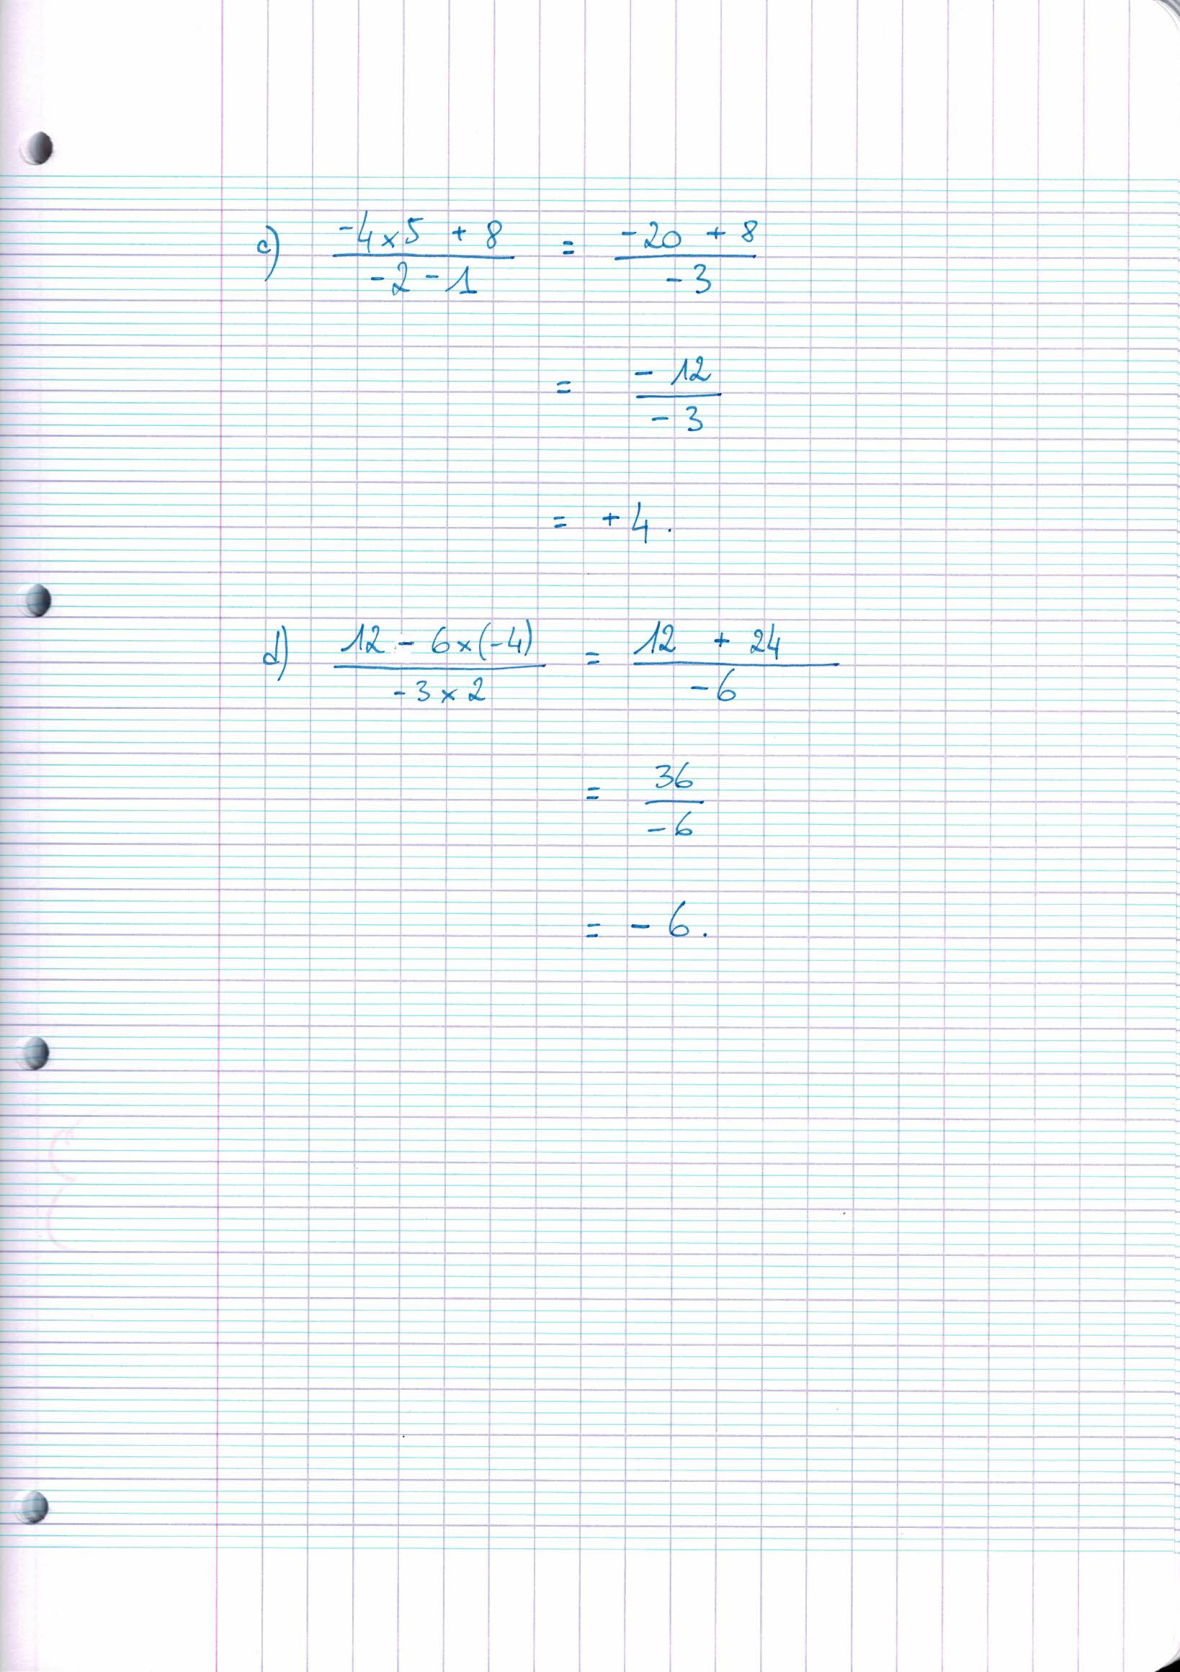 c) (-4×5 + 8)/(-2 - 1) = (-20 + 8)/(-3)
= (-12)/(-3)
= +4.
d) (12 - 6×(-4))/(-3×2) = (12 + 24)/(-6)
= 36/(-6)
= -6.